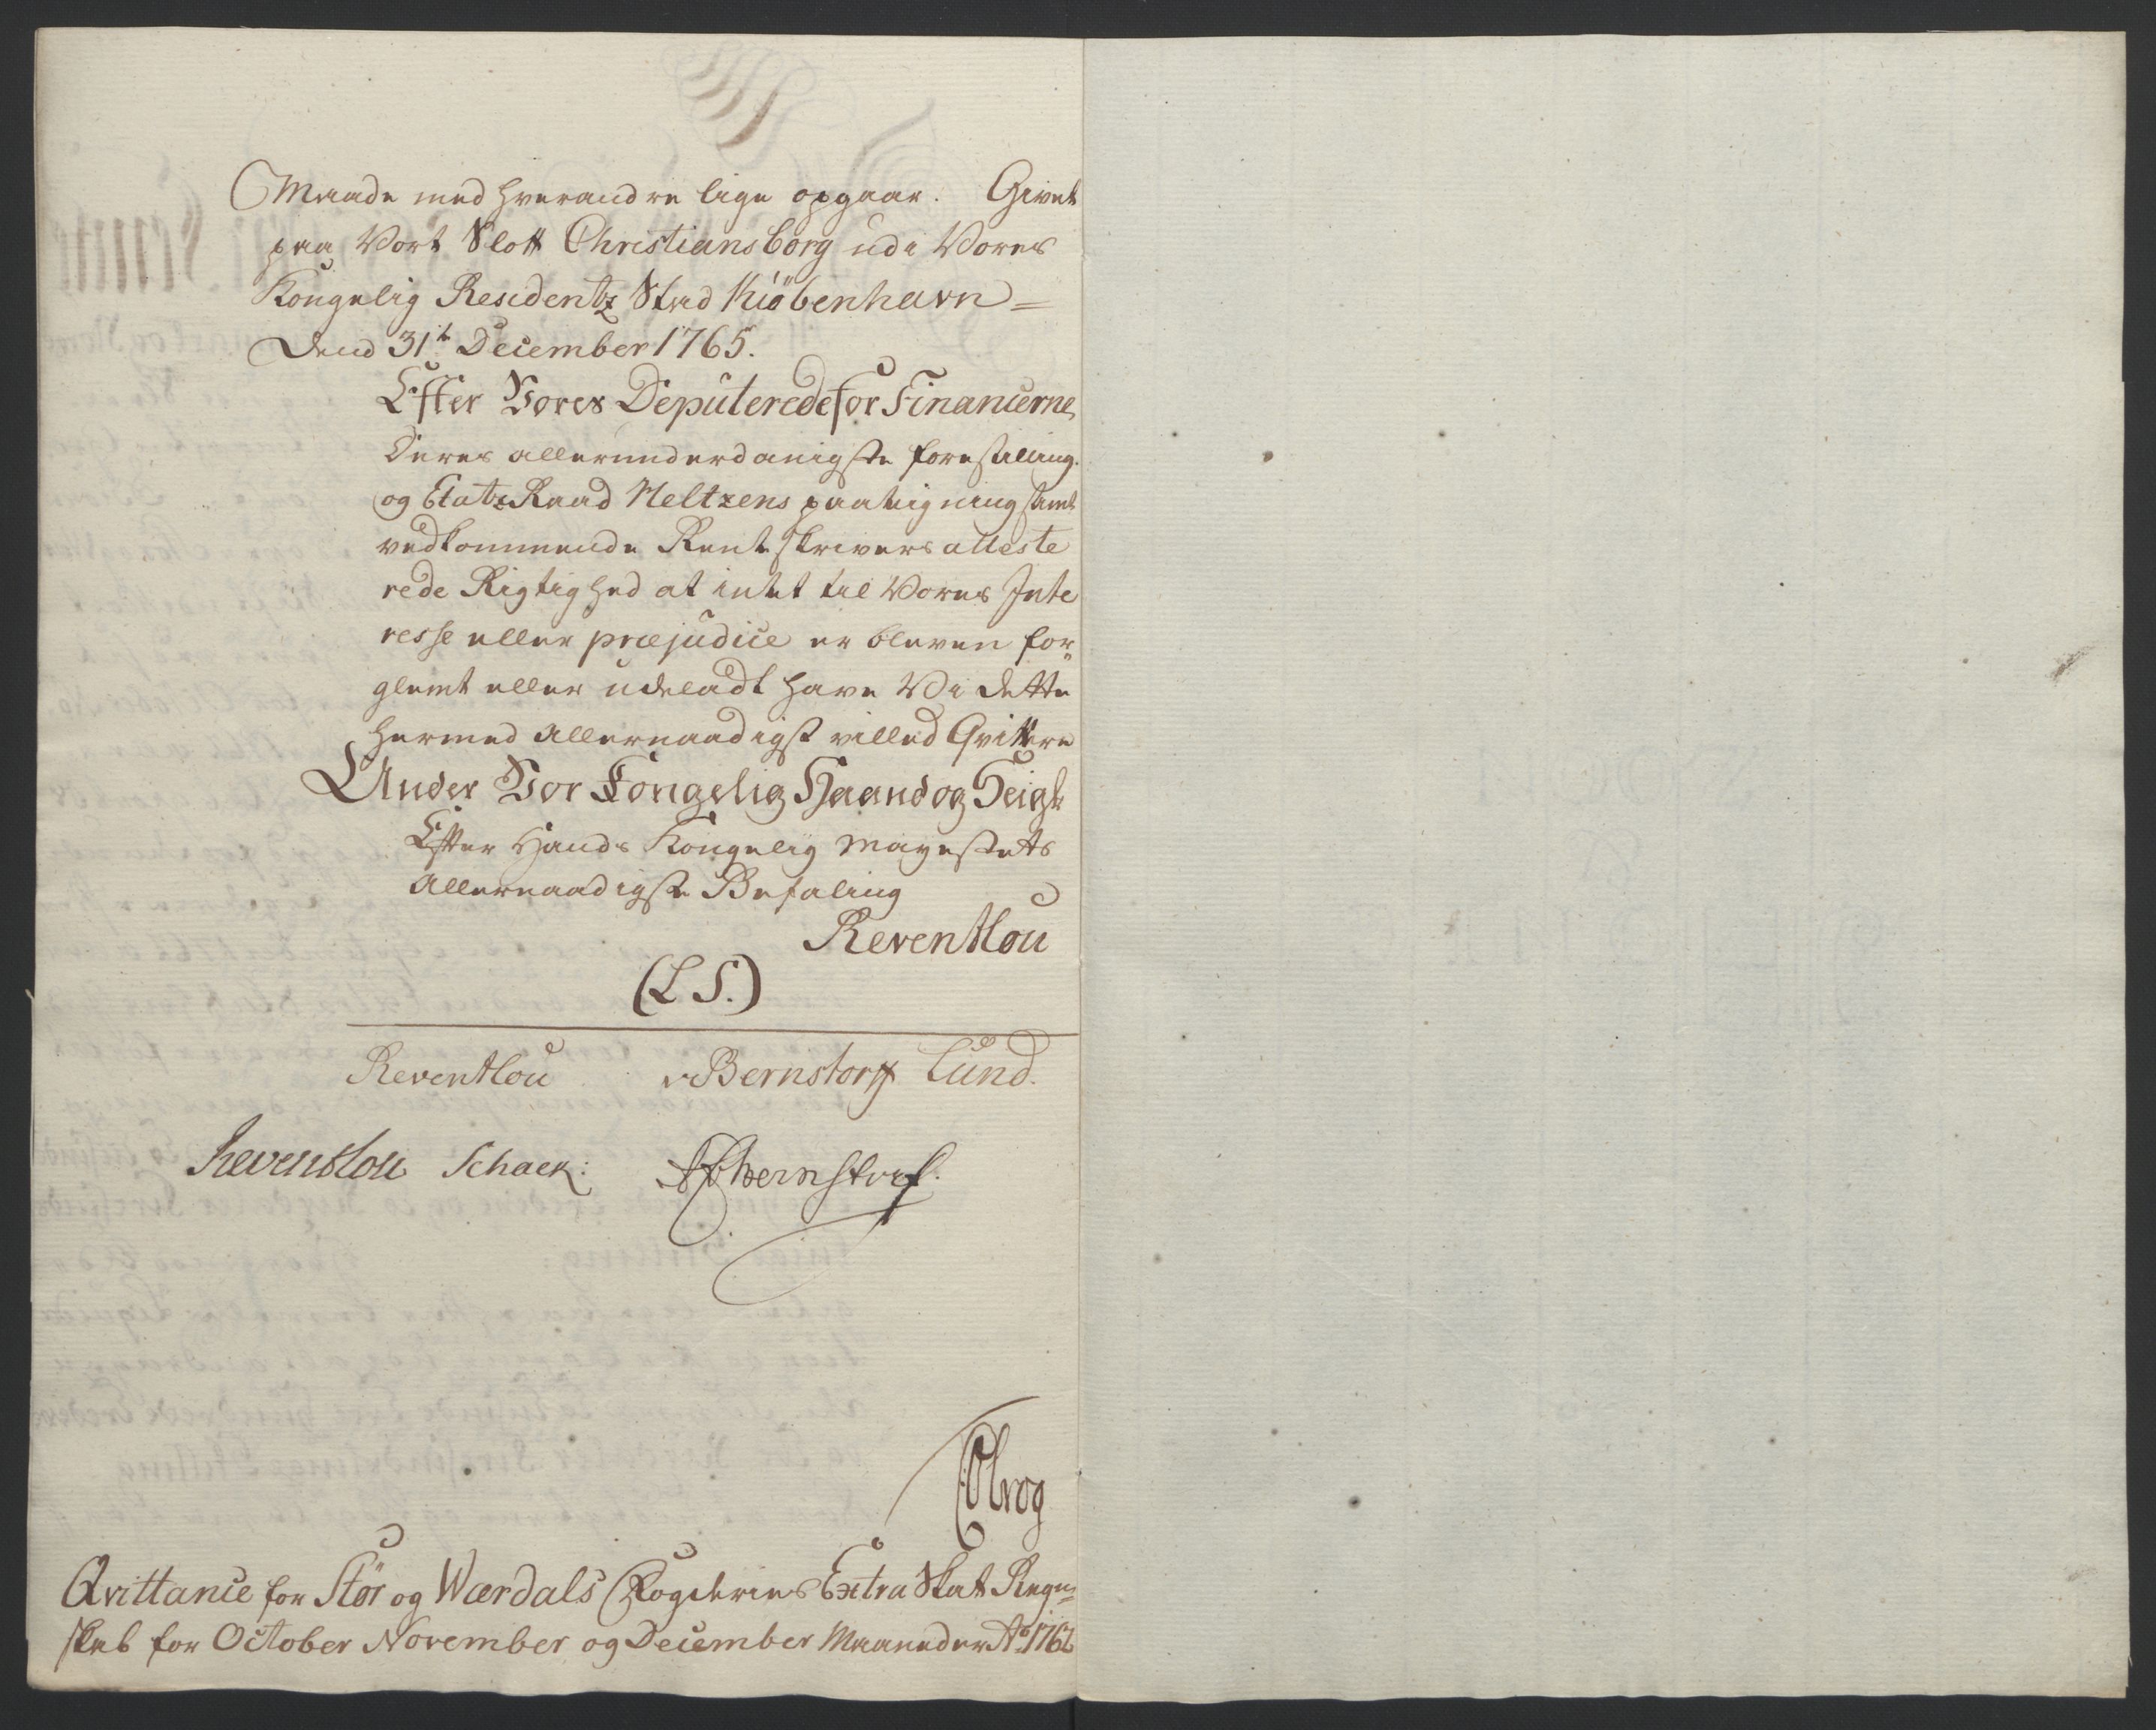 Maade med hverandre lige opgaar. Givet
paa Vort Slott Christiansborg udi Vores
Kongelig Residentz Stad Kiöbenhavn =
Dend 31te December 1765.
Efter Vores Deputerede for Financerne
Deres allerunderdanigste forestilling.
og Etatz Raad Neltzens paategning samt
vedkommende Rentskrivers atteste
rede Rigtighed at intet til Vores Inte
resse eller præjudice er bleven for„
glemt eller udeladt have Vi dette
hermed Allernaadigst villed Qvittere
Under Vor Kongelig Haand og Seigl
Efter Hands Kongelig Mayestets
Allernaadigste Befaling
Reventlou
(L S.)
Reventlou v Bernstorff Lund.
Reventlou Schack: Bernstorf.
Qvittance for Stör og Wærdals Fogderies Extra Skat Regn=
skab for October November og December Maaneder Ao 1762